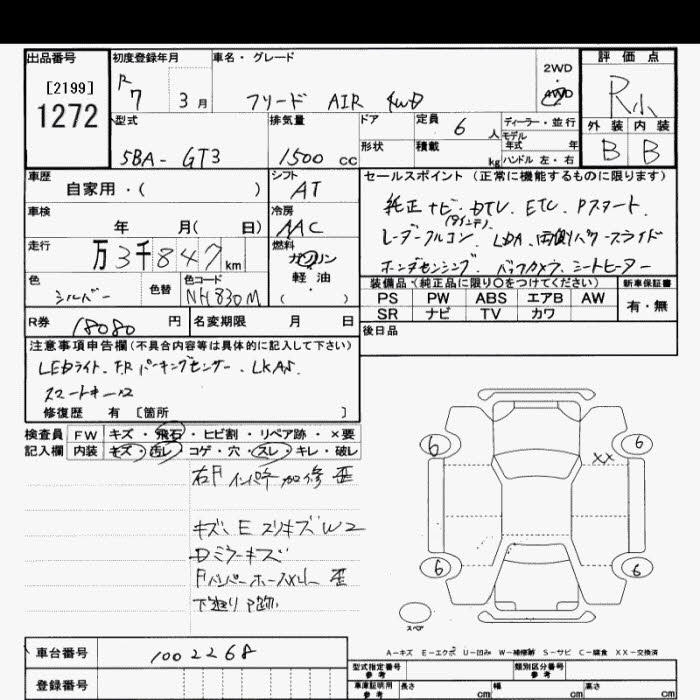 出品番号 初度登録年月 車名・グレード 評価点
[2199] R 7 3月 フリード AIR 4WD 2WD AWD R小
1272
型式 排気量 ドア 定員 6 人 ディーラー・並行 外装 内装
5BA- GT3 1500 cc 形状 積載 kg モデル年式 年 B B
ハンドル 左・右
車歴 シフト セールスポイント(正常に機能するものに限ります)
自家用・( ) AT 純正ナビ・DTV. ETC. Pスタート.
車検 冷房
年 月( 日) AAC レーダークルコン. LDA. 両側パワースライド
走行 燃料
万3千847km ガソリン ホンダセンシング. バックカメラ. シートヒーター
軽油
( )
色 色替 色コード 装備品(純正品に限り○をつけてください) 新車保証書
シルバー NH830M PS PW ABS エアB AW 有・無
SR ナビ TV カワ
R券 18080 円 名変期限 月 日 後日品
注意事項申告欄(不具合内容等は具体的に記入して下さい)
LEDライト. FRパーキングセンサー. LKAS.
スマートキー×2
修復歴 有 [箇所 ]
検査員 FW キズ・飛石・ヒビ割・リペア跡・×要
記入欄 内装 キズ・汚レ・コゲ・穴・スレ・キレ・破レ
キズ、Eスリキズ W2
Dミラーキズ
6 6
XX
6 6
スペア
A-キズ E-エクボ U-凹み W-補修跡 S-サビ C-腐食 XX-交換済
車台番号 1002268
型式指定番号 参考 類別区分番号 参考
登録番号 車庫証明用 参考 長さ cm 幅 cm 高さ cm